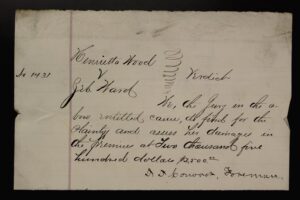 Henrietta Wood
V Verdict
No 1431
Zeb Ward
We, the Jury in the a-
bove entitled cause, do find for the
plaintiff and assess her damages in
the premises at Two thousand five
hundred dollars $2500.00
Foreman.